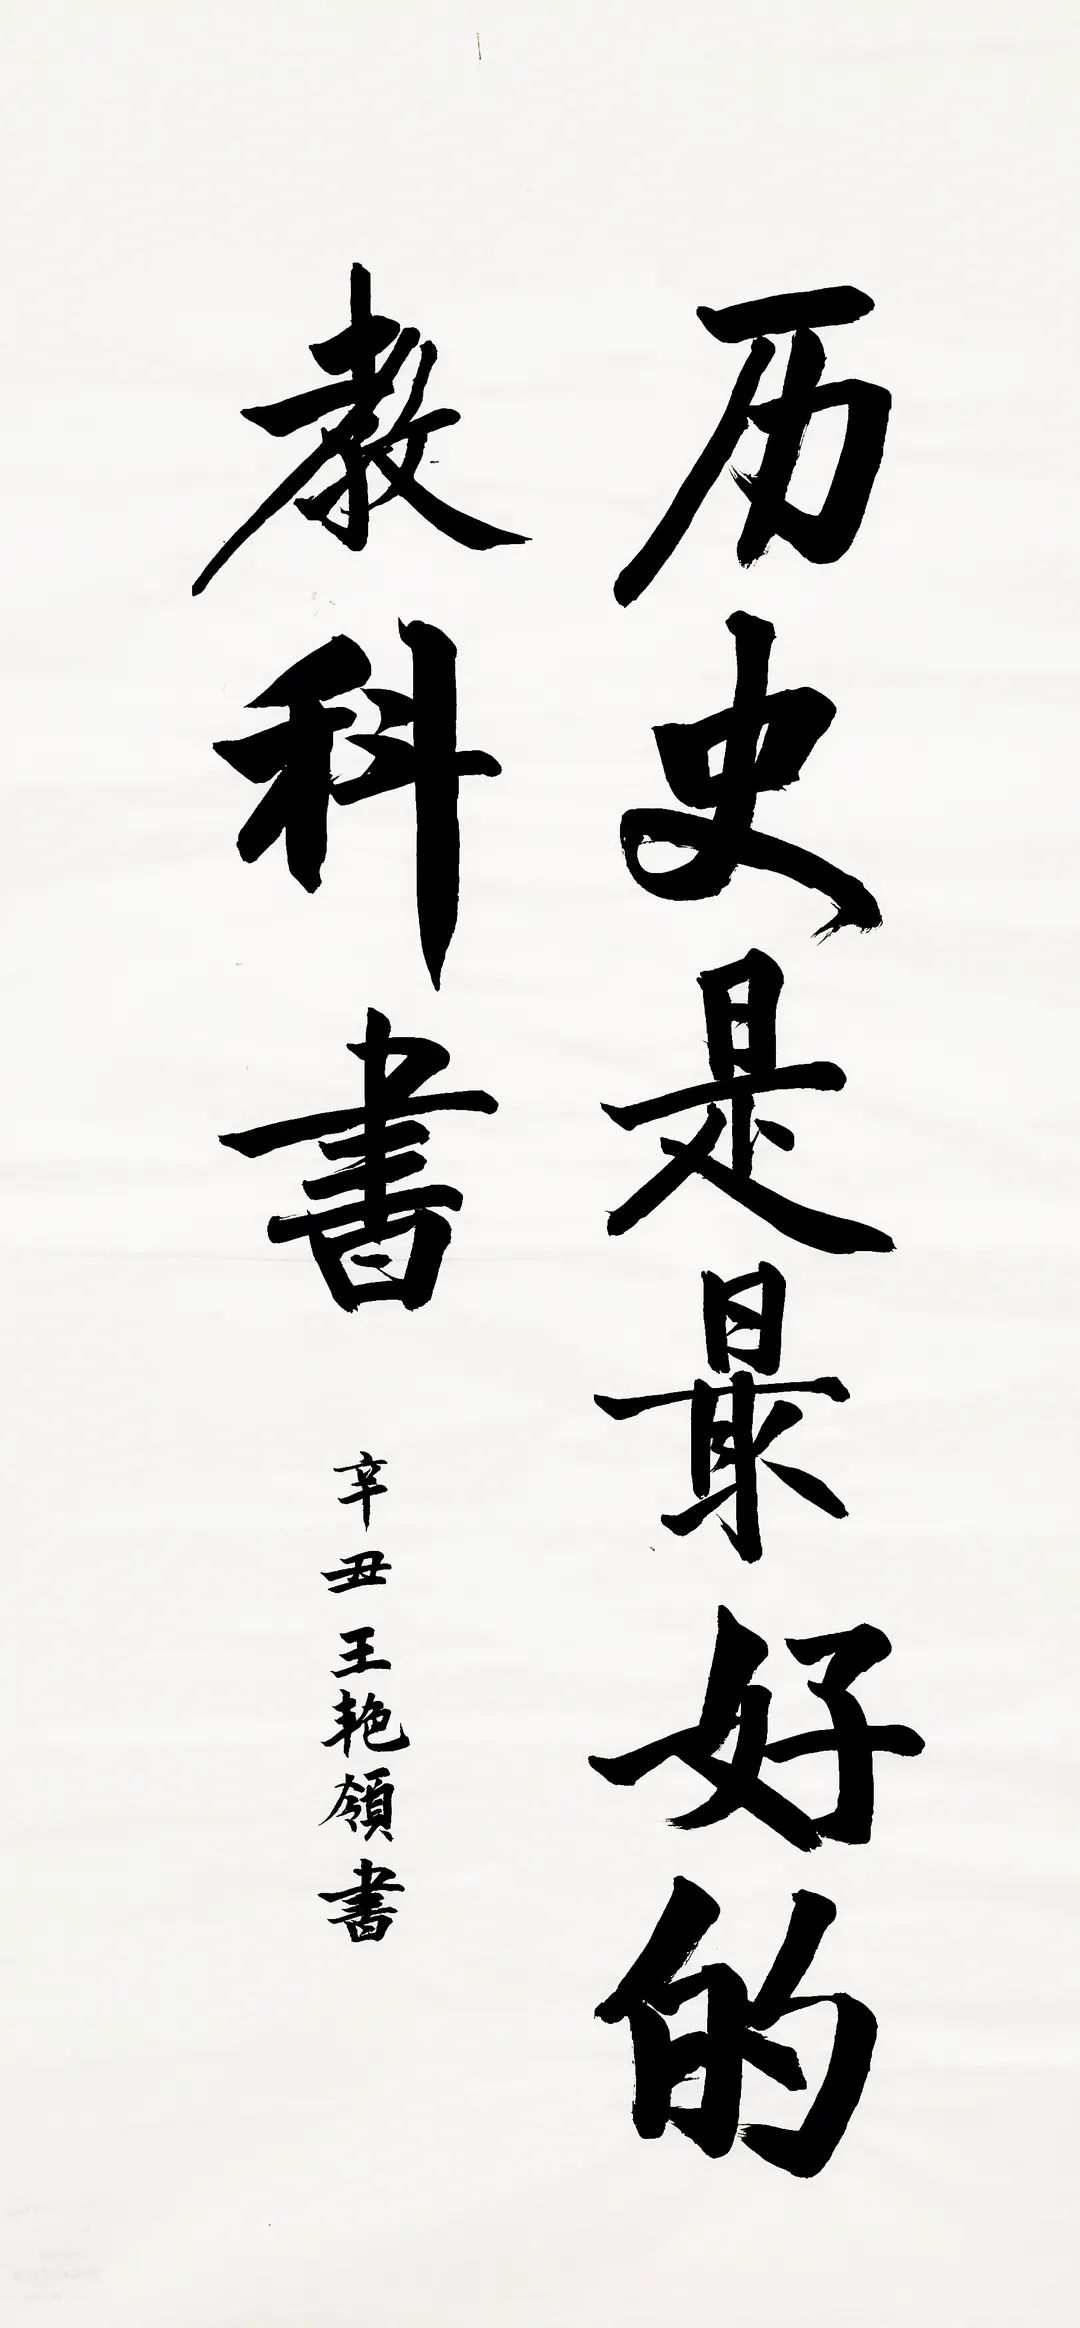 历史是最好的
教科書
辛丑王艳領書